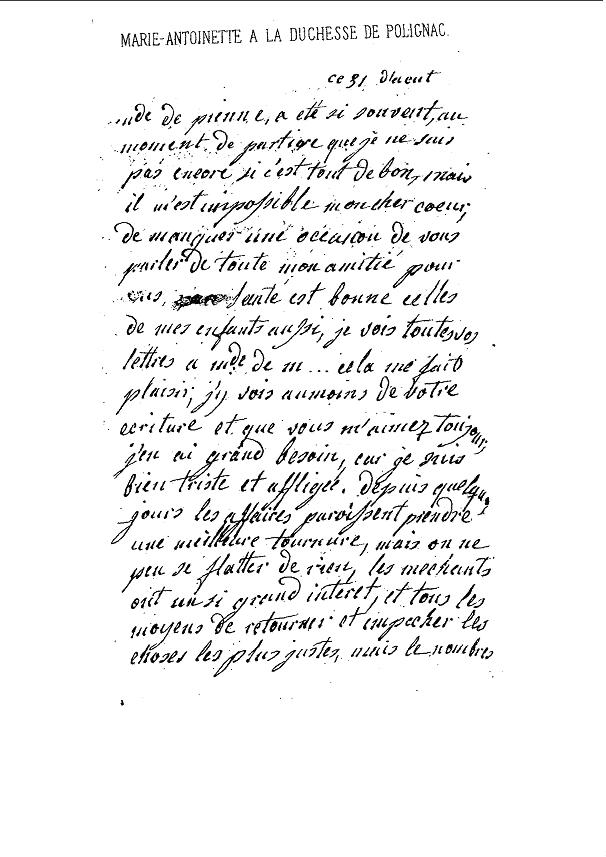 MARIE-ANTOINETTE A LA DUCHESSE DE POLIGNAC.
ce 31 d'aout
mde de pienne, a eté si souvent, au
moment de partire que je ne sais
pas encore si c'est tout de bon, mais
il m'est impossible mon cher coeur,
de manquer une occasion de vous
parler de toute mon amitié pour
vous, santé est bonne celles
de mes enfants aussi, je vois toutes vos
lettres a mde de m... cela me fait
plaisir, j'y vois aumoins de votre
ecriture et que vous m'aimez toujour,
j'en ai grand besoin, car je suis
bien triste et affligée. depuis quelque
jours les affaires paroissent prendre
une meilleure tournure, mais on ne
peu se flatter de rien, les mechants
ont un si grand interet, et tous les
moyens de retourner et empecher les
choses les plus justes, mais le nombres